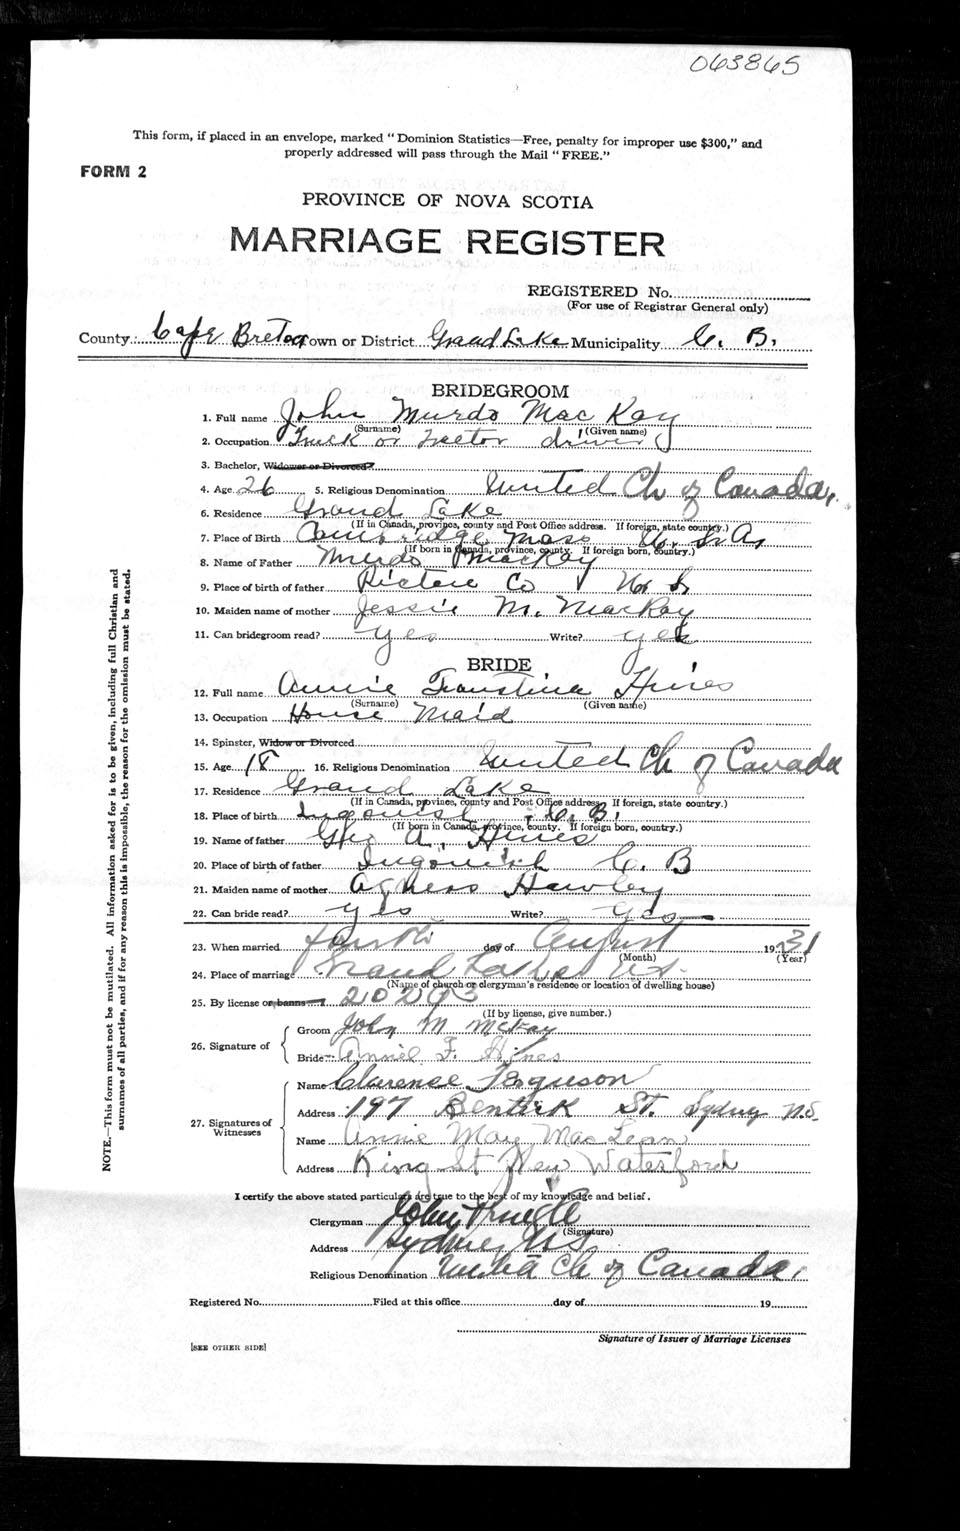 063865
This form, if placed in an envelope, marked "Dominion Statistics—Free, penalty for improper use $300," and
properly addressed will pass through the Mail "FREE."
FORM 2
PROVINCE OF NOVA SCOTIA
MARRIAGE REGISTER
REGISTERED No.
(For use of Registrar General only)
County: Cape Breton Town or District Grand Lake Municipality C. B.
BRIDEGROOM
1. Full name John Murdo MacKay
(Surname) (Given name)
2. Occupation Truck or Tractor driver
3. Bachelor, Widower or Divorced?
4. Age 26 5. Religious Denomination United Ch of Canada,
6. Residence Grand Lake
(If in Canada, province, county and Post Office address. If foreign, state country.)
7. Place of Birth Cambridge Mass U. S. A,
(If born in Canada, province, county. If foreign born, country.)
8. Name of Father Murdo MacKay
9. Place of birth of father Pictou Co N. S
10. Maiden name of mother Jessie M. MacKay
11. Can bridegroom read? yes Write? yes
BRIDE
12. Full name Annie Faustina Hines
(Surname) (Given name)
13. Occupation House Maid
14. Spinster, Widow or Divorced
15. Age 18 16. Religious Denomination United Ch of Canada
17. Residence Grand Lake
(If in Canada, province, county and Post Office address. If foreign, state country.)
18. Place of birth Ingonish C. B.
(If born in Canada, province, county. If foreign born, country.)
19. Name of father Geo A. Hines
20. Place of birth of father Ingonish C. B
21. Maiden name of mother Agness Hawley
22. Can bride read? yes Write? yes
23. When married fourth day of August 1931
(Month) (Year)
24. Place of marriage Grand Lake
(Name of church or clergyman's residence or location of dwelling house)
25. By license or banns
(If by license, give number.)
26. Signature of
Groom John M McKay
Bride Annie F. Hines
27. Signatures of Witnesses
Name Clarence Ferguson
Address 197 Bentick St. Sydney N.S
Name Annie May MacLean
Address King St New Waterford
I certify the above stated particulars are true to the best of my knowledge and belief.
Clergyman John
(Signature)
Address Sydney NS
Religious Denomination United Ch of Canada.
Registered No. Filed at this office day of 19
Signature of Issuer of Marriage Licenses
[SEE OTHER SIDE]
NOTE.—This form must not be mutilated. All information asked for is to be given, including full Christian and
surnames of all parties, and if for any reason this is impossible, the reason for the omission must be stated.